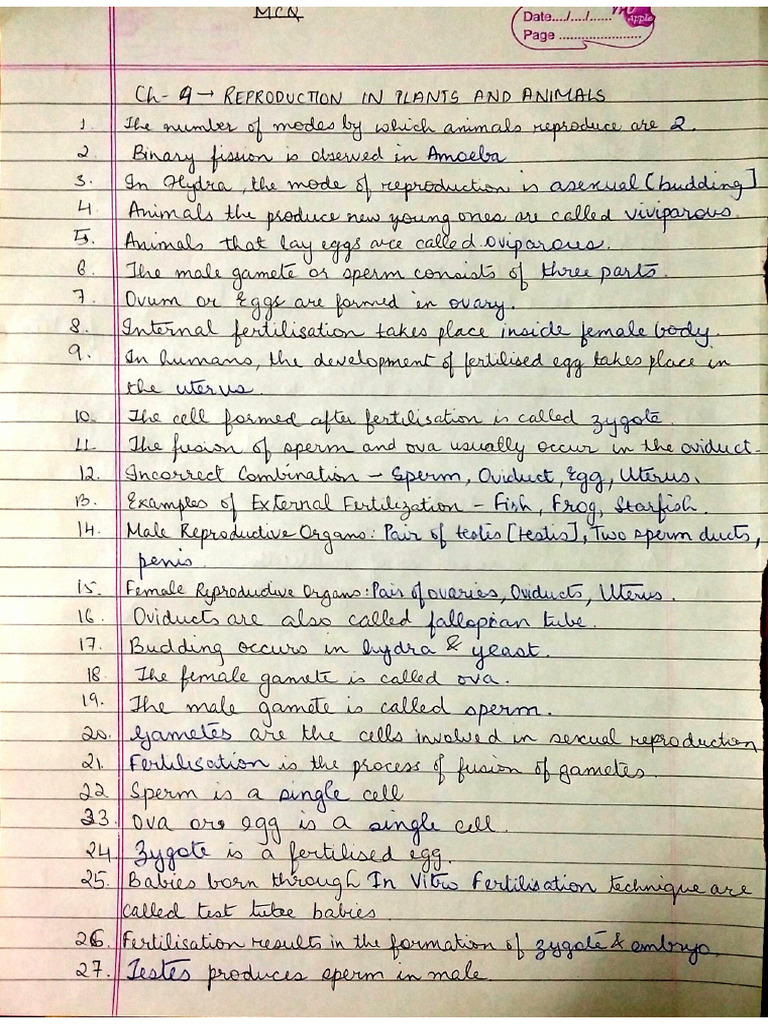 MCQ
Date..../..../......
Apple
Page ......................
Ch- 9 → REPRODUCTION IN PLANTS AND ANIMALS
1. The number of modes by which animals reproduce are 2.
2. Binary fission is observed in Amoeba
3. In Hydra, the mode of reproduction is asexual [budding]
4. Animals the produce new young ones are called viviparous.
5. Animals that lay eggs are called oviparous.
6. The male gamete or sperm consists of three parts.
7. Ovum or Eggs are formed in ovary.
8. Internal fertilisation takes place inside female body.
9. In humans, the development of fertilised egg takes place in
the uterus.
10. The cell formed after fertilisation is called zygote.
11. The fusion of sperm and ova usually occur in the oviduct.
12. Incorrect Combination - Sperm, Oviduct, Egg, Uterus.
13. Examples of External Fertilization - Fish, Frog, Starfish.
14. Male Reproductive Organs: Pair of testis [testis], Two sperm ducts,
penis.
15. Female Reproductive Organs: Pair of ovaries, Oviducts, Uterus.
16. Oviducts are also called fallopian tube.
17. Budding occurs in hydra & yeast.
18. The female gamete is called ova.
19. The male gamete is called sperm.
20. Gametes are the cells involved in sexual reproduction
21. Fertilisation is the process of fusion of gametes.
22. Sperm is a single cell
23. Ova or egg is a single cell.
24. Zygote is a fertilised egg.
25. Babies born through In Vitro Fertilisation technique are
called test tube babies
26. Fertilisation results in the formation of zygote & embryo.
27. Testes produces sperm in male.